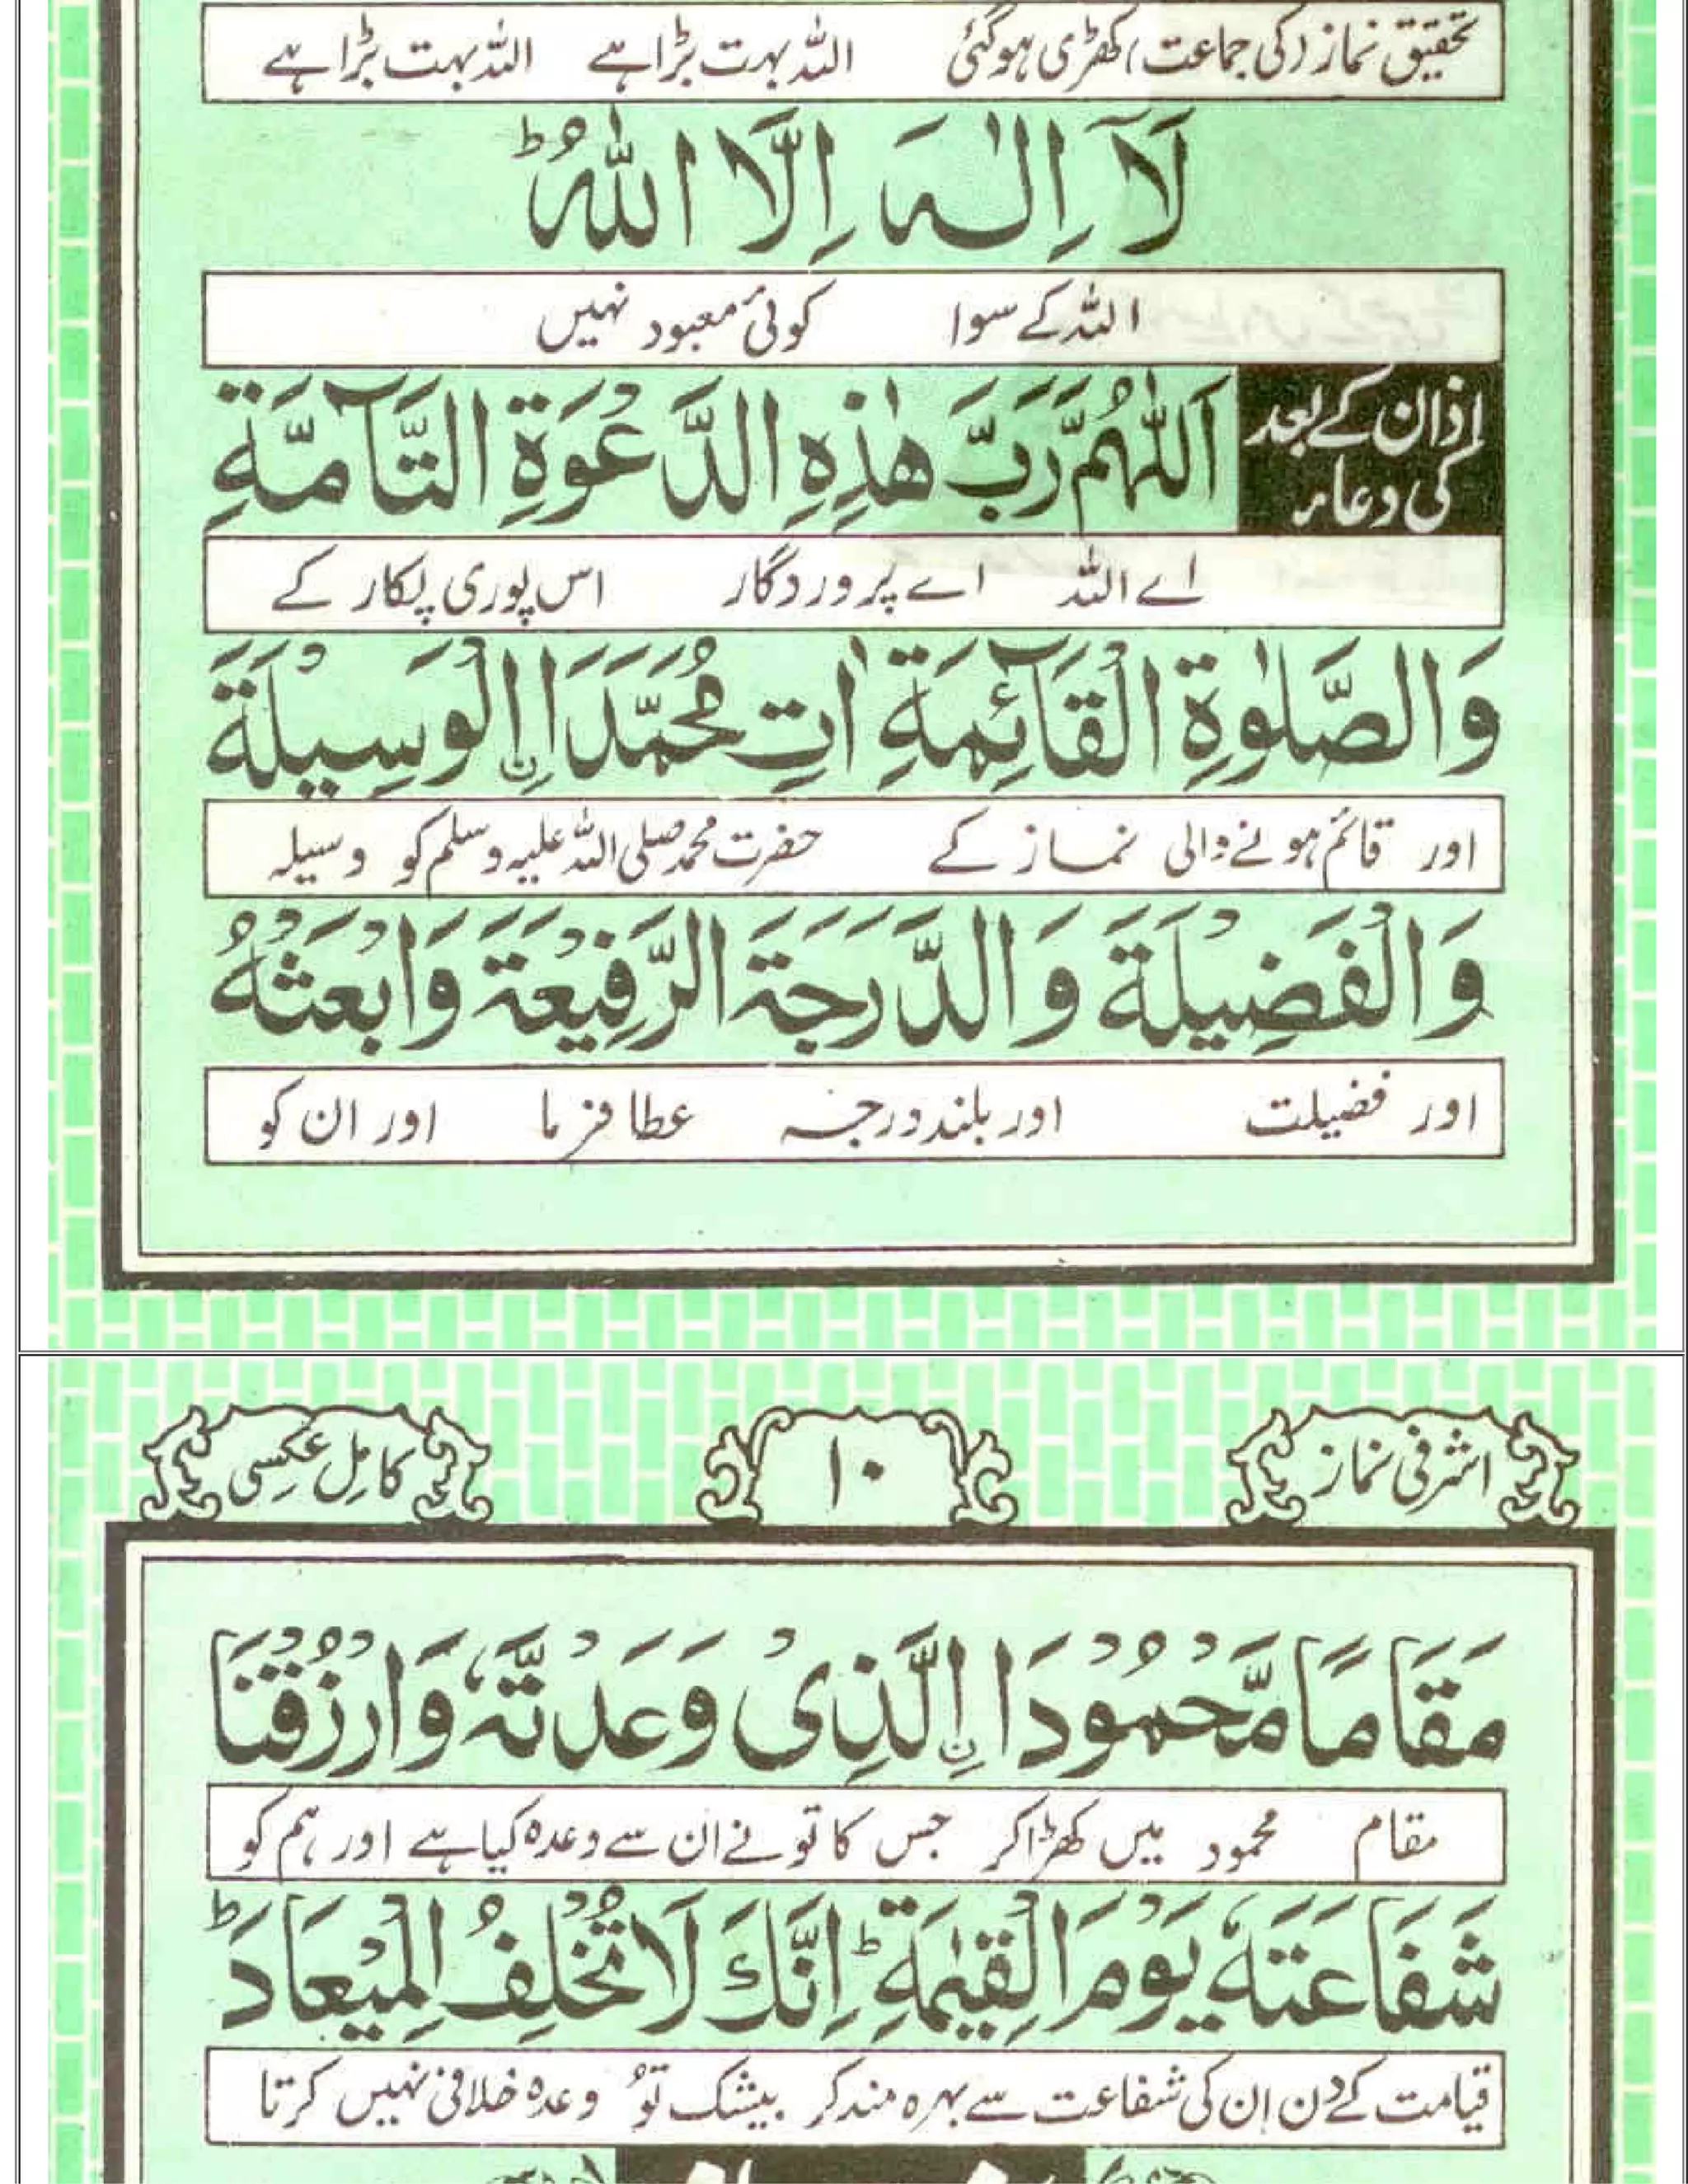 تحقیق نماز (کی جماعت) کھڑی ہوگئی اللہ بہت بڑا ہے اللہ بہت بڑا ہے
لَآ اِلٰہَ اِلَّا اللّٰہُ ؕ
اللہ کے سوا کوئی معبود نہیں
اذان کے بعد
کی دعاء
اَللّٰہُمَّ رَبَّ ہٰذِہِ الدَّعْوَةِ التَّآمَّةِ
اے اللہ اے پروردگار اس پوری پکار کے
وَالصَّلٰوةِ الْقَآئِمَةِ اٰتِ مُحَمَّدَا اِ۟لْوَسِیْلَةَ
اور قائم ہونے والی نماز کے حضرت محمد صلی اللہ علیہ وسلم کو وسیلہ
وَالْفَضِیْلَةَ وَالدَّرَجَةَ الرَّفِیْعَةَ وَابْعَثْہُ
اور فضیلت اور بلند درجہ عطا فرما اور ان کو
اشرفی نماز
۱۰
کامل عکسی
مَقَامًا مَّحْمُوْدَا اِ۟لَّذِیْ وَعَدْتَّہٗ وَارْزُقْنَا
مقام محمود میں کھڑا کر جس کا تو نے ان سے وعدہ کیا ہے اور ہم کو
شَفَاعَتَہٗ یَوْمَ الْقِیٰمَةِ ؕ اِنَّكَ لَا تُخْلِفُ الْمِیْعَادَ ؕ
قیامت کے دن ان کی شفاعت سے بہرہ مند کر بیشک توُ وعدہ خلافی نہیں کرتا